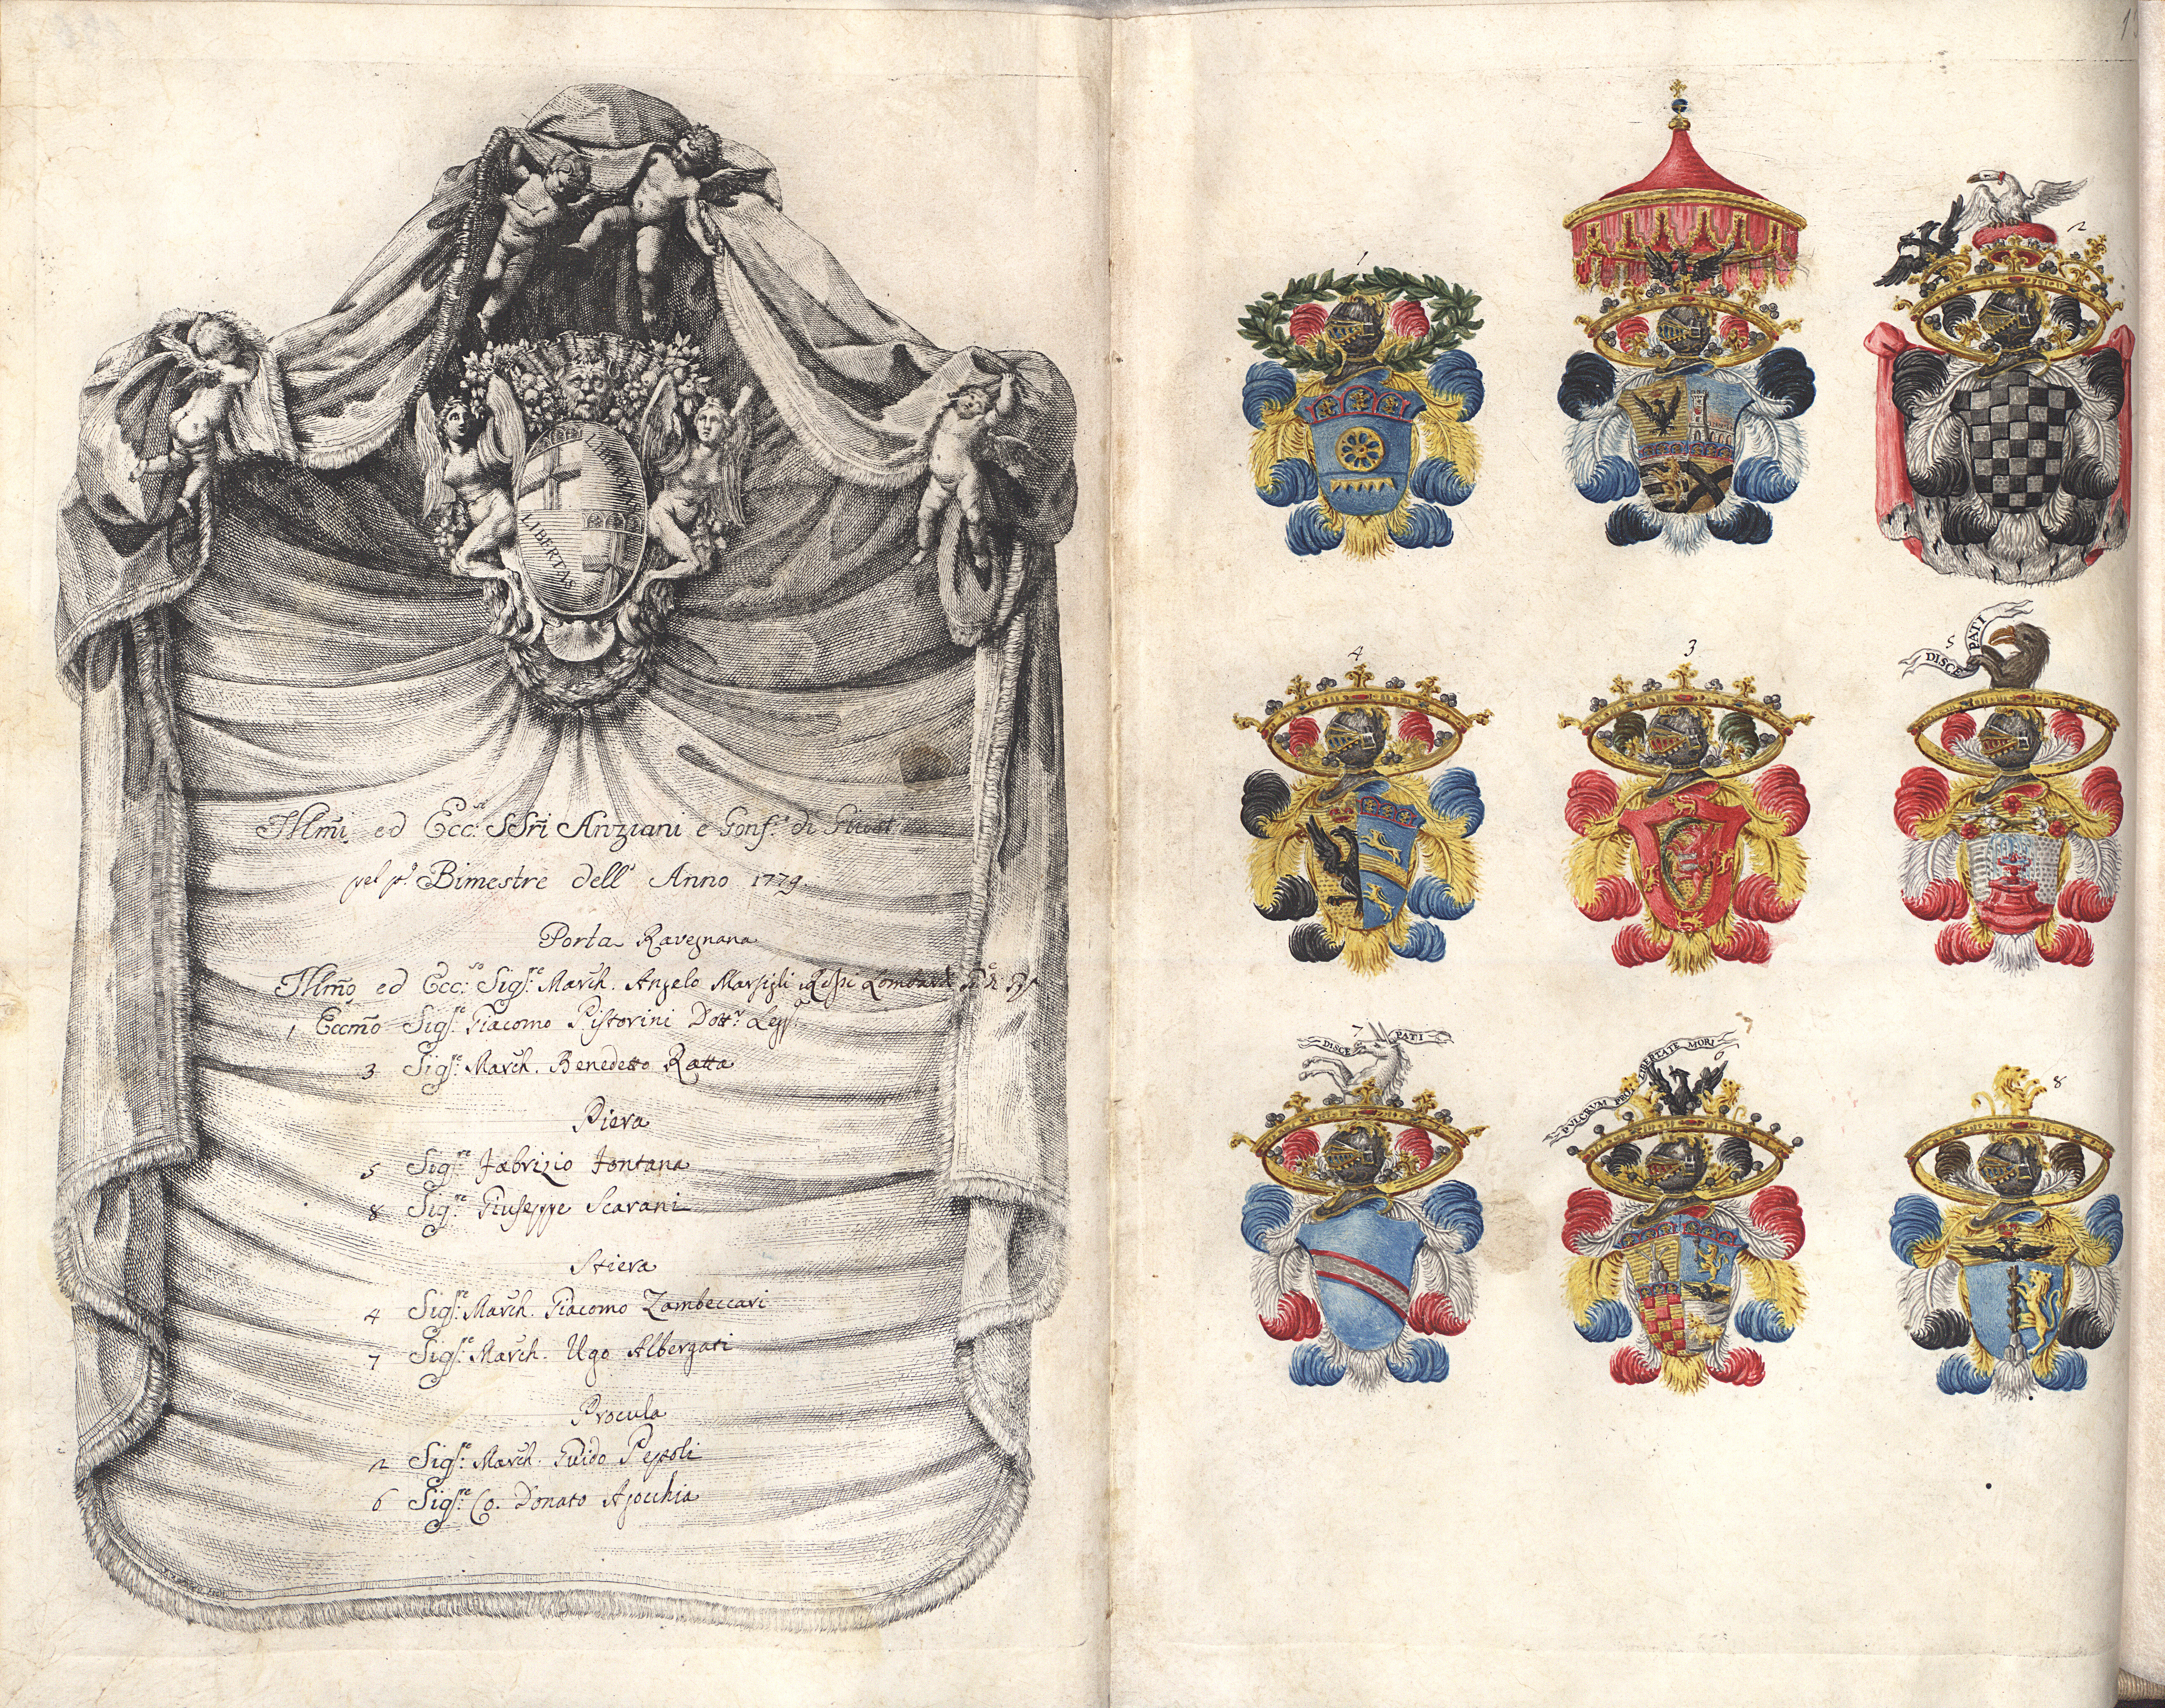 LIBERTAS
LIBERTAS
Illmi ed Ecc.si SSri Anziani e Gonf.e di Giust
pel po. Bimestre dell' Anno 1779.
Porta Ravegnana
Illmo ed Ecc.so Sigr.e March. Angelo Marsigli Rossi Lombardi
1 Eccmo Sigr.e Giacomo Pistorini Dottr. Legg.
3 Sigr.e March. Benedetto Ratta
Piera
5 Sigr.e Fabrizio Fontana
8 Sigr.e Giuseppe Scarani
Stiera
4 Sigr.e March. Giacomo Zambeccari
7 Sigr.e March. Ugo Albergati
Procula
2 Sigr.e March. Guido Pepoli
6 Sigr.e Co. Donato Ajocchia
1
2
4
3
5
DISCE PATI
7
DISCE PATI
6
PVLCRVM PRO LIBERTATE MORI
8